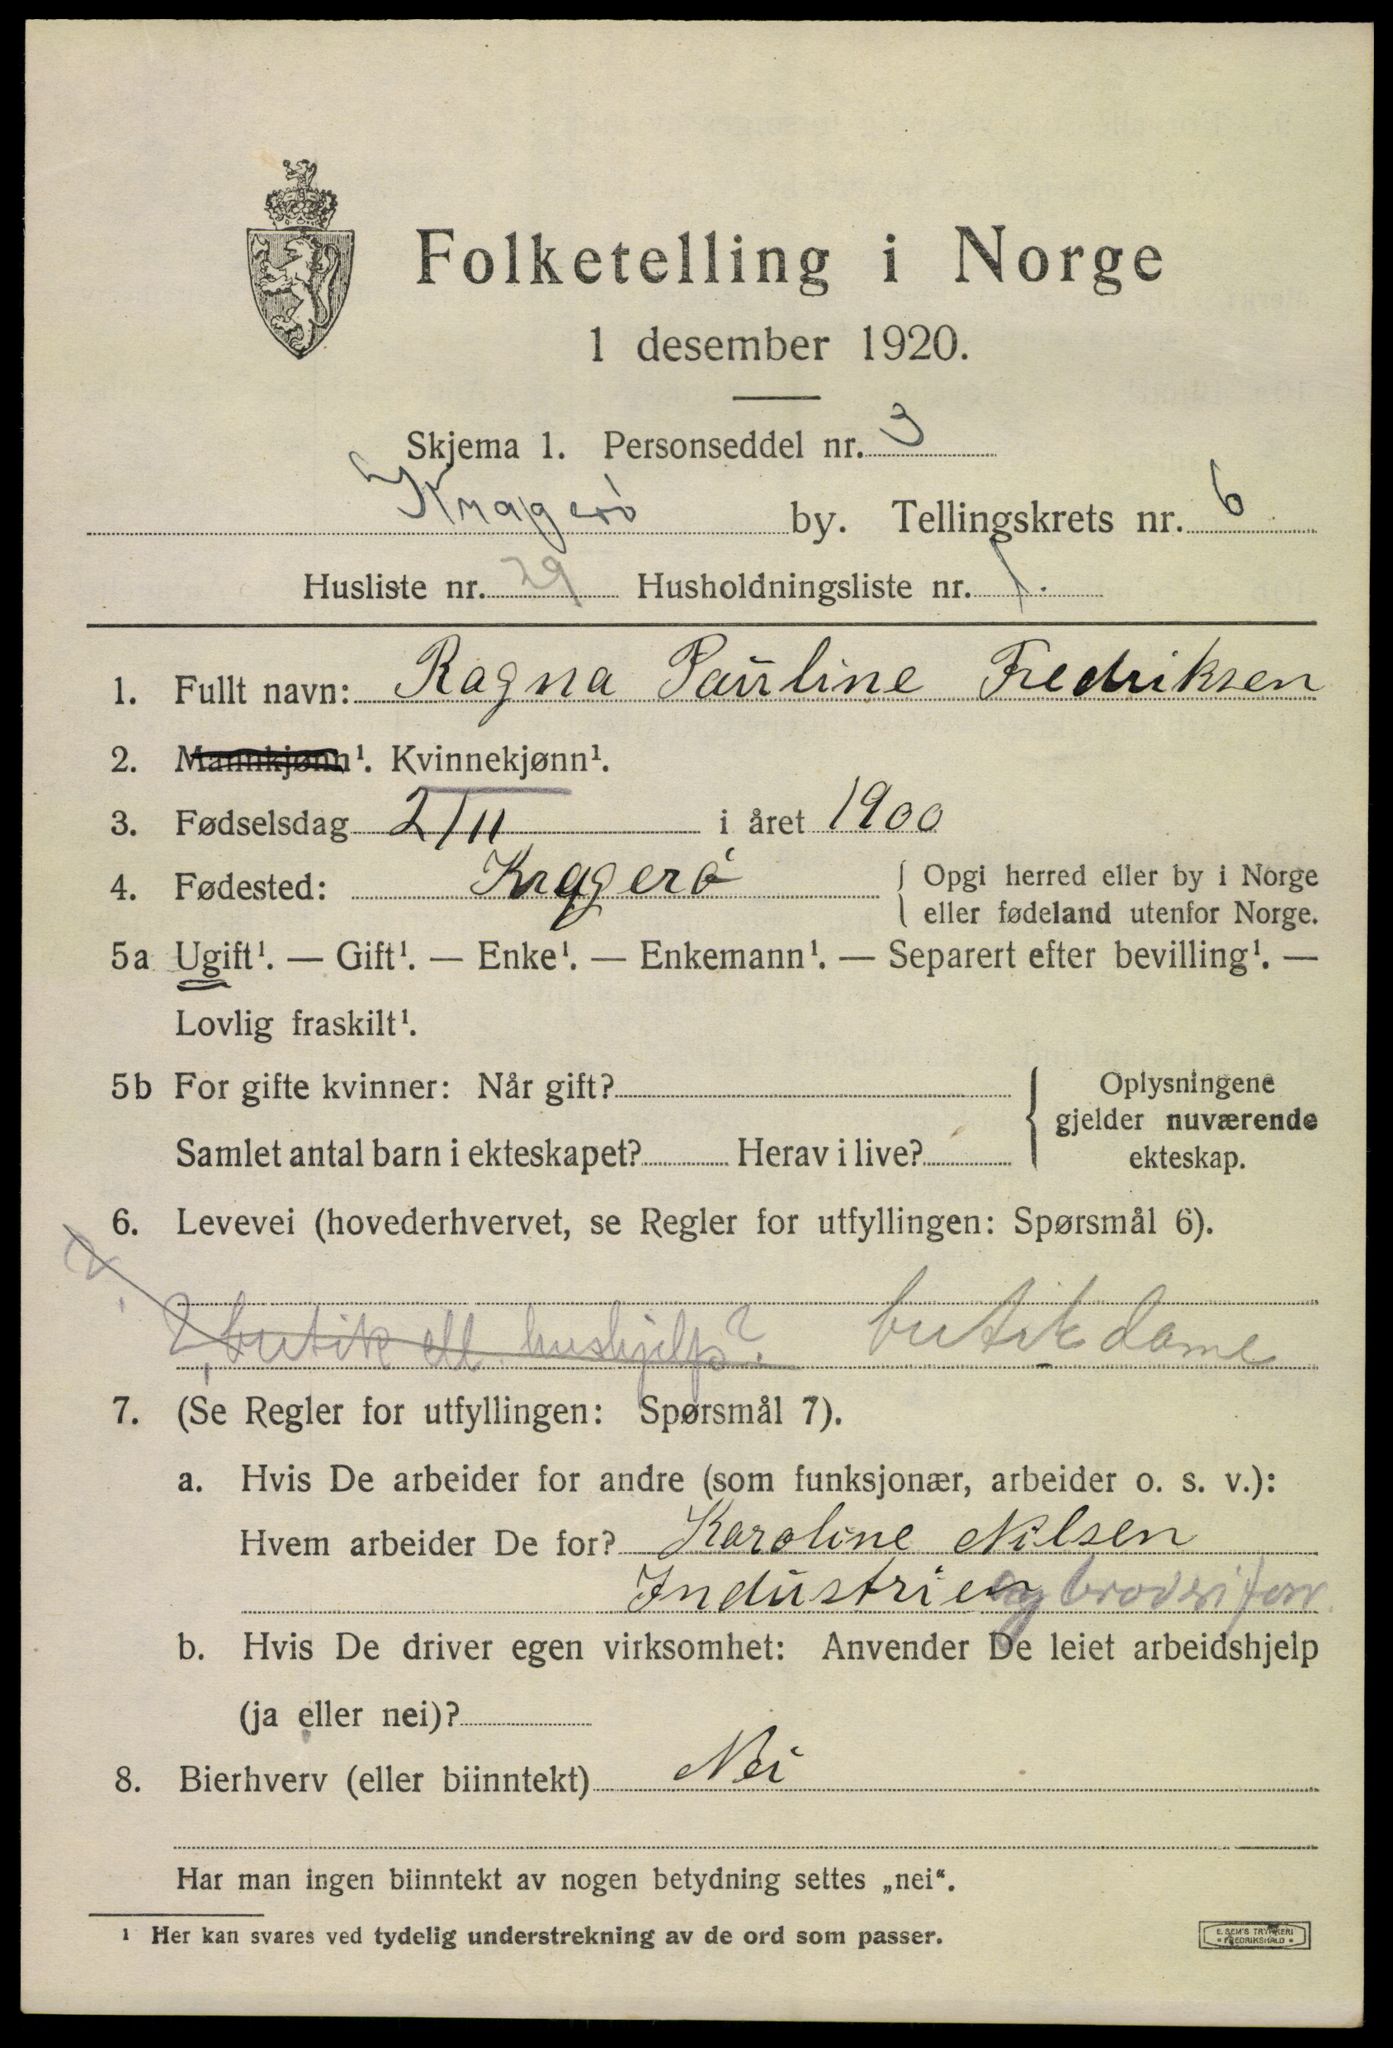 Folketelling i Norge
1 desember 1920.
Skjema 1. Personseddel nr. 3
Kragerø by. Tellingskrets nr. 6
Husliste nr. 29 Husholdningsliste nr. 1.
1. Fullt navn: Ragna Pauline Fredriksen
2. Mannkjønn¹. Kvinnekjønn¹.
3. Fødselsdag 2/11 i året 1900
4. Fødested: Kragerø { Opgi herred eller by i Norge
eller fødeland utenfor Norge.
5a Ugift¹. — Gift¹. — Enke¹. — Enkemann¹. — Separert efter bevilling¹. —
Lovlig fraskilt¹.
5b For gifte kvinner: Når gift? { Oplysningene
gjelder nuværende
Samlet antal barn i ekteskapet? Herav i live? ekteskap.
6. Levevei (hovederhvervet, se Regler for utfyllingen: Spørsmål 6).
? butik ell. hushjelp? butikdame
7. (Se Regler for utfyllingen: Spørsmål 7).
a. Hvis De arbeider for andre (som funksjonær, arbeider o. s. v.):
Hvem arbeider De for? Karoline Nilsen
Industri og broderiforr.
b. Hvis De driver egen virksomhet: Anvender De leiet arbeidshjelp
(ja eller nei)?
8. Bierhverv (eller biinntekt) Nei
Har man ingen biinntekt av nogen betydning settes „nei“.
¹ Her kan svares ved tydelig understrekning av de ord som passer.
E. SEM'S TRYKKERI
* FREDRIKSHALD *